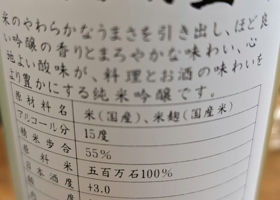 米のやわらかなうまさを引き出し、ほど良
い吟醸の香りとまろやかな味わい、心
地よい酸味が、料理とお酒の味わいを
より豊かにする純米吟醸です。
原材料名 米(国産)、米麹(国産米)
アルコール分 15度
精米歩合 55%
原料米 五百万石100%
日本酒度 +3.0